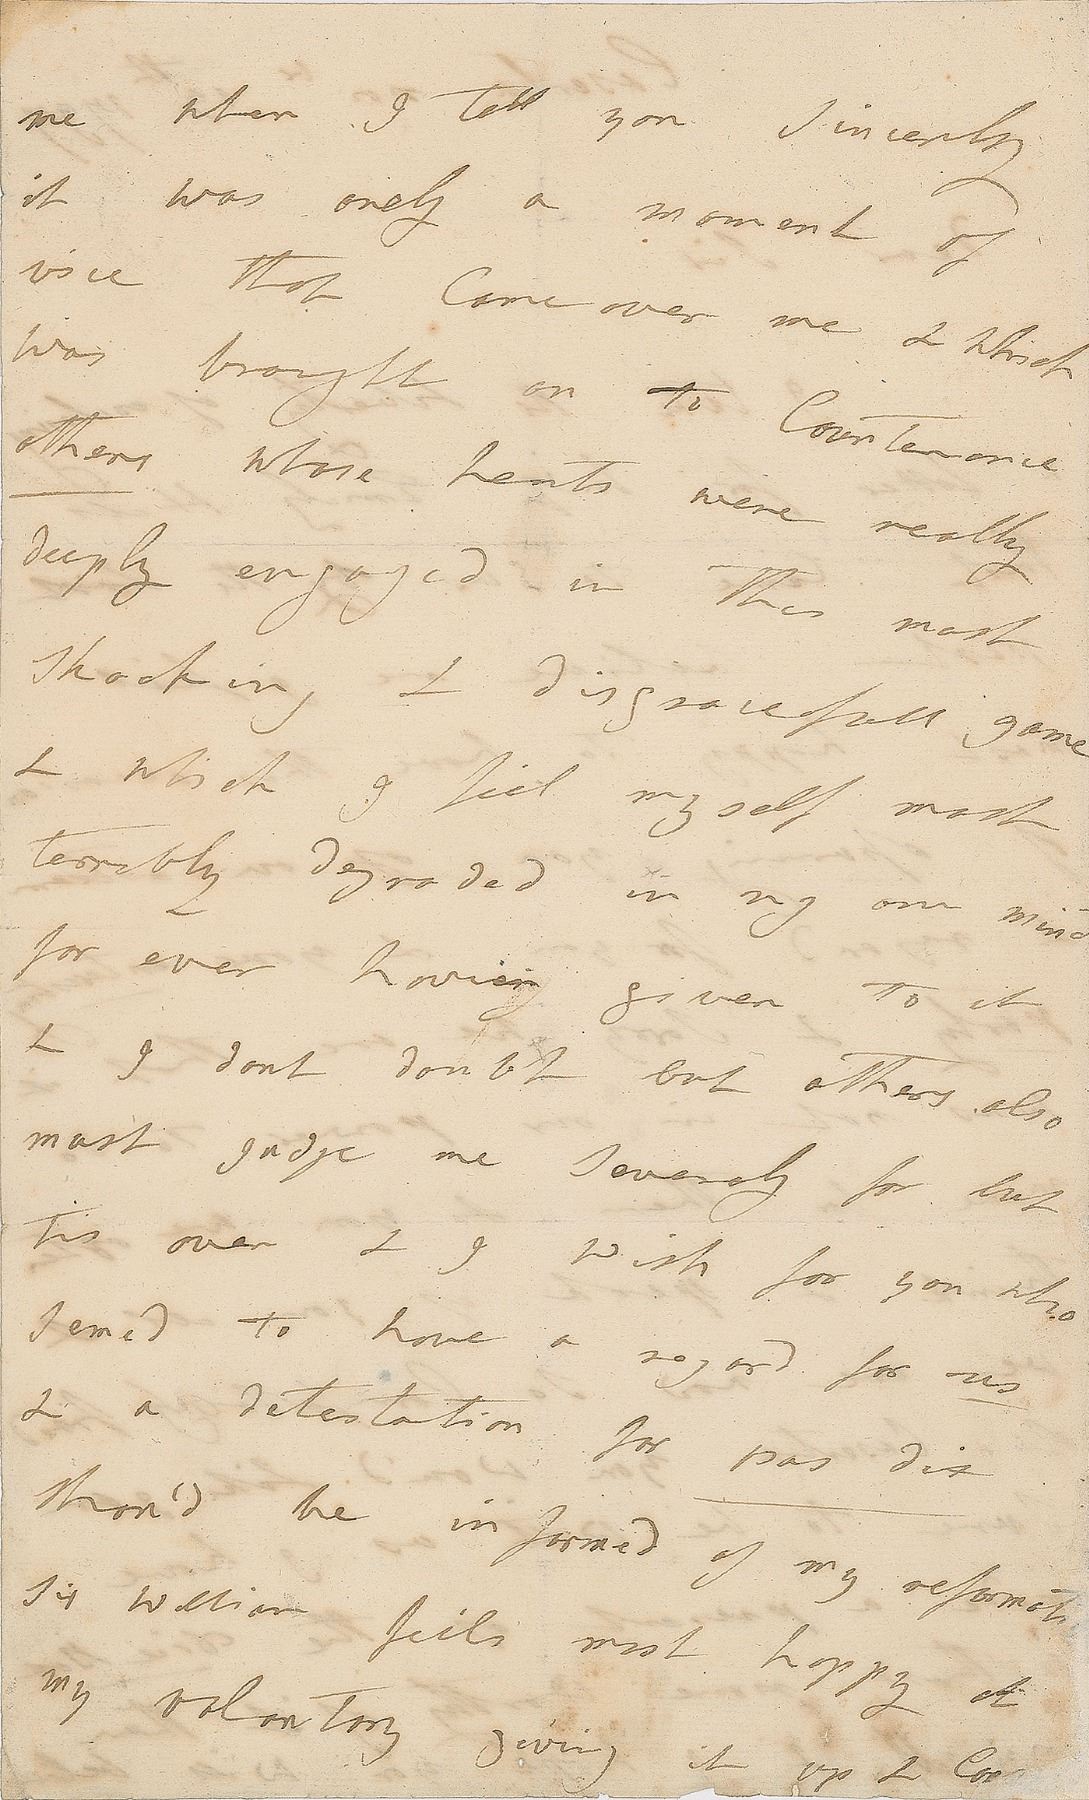 me when I tell you sincerly
it was onely a moment of
vice that Came over me & which
was brought on to Countenance
others whose hearts were really
deeply engaged in this most
shocking & disgracefull game
& which I feel myself most
terribly degraded in my own mind
for ever having given to it
& I dont doubt but others also
must gudge me severely for but
tis over & I wish for you who
semed to have a regard for us
& a detestation for pas dix
shou'd be informed of my reformati
Sir William feils most happy at
my voluntary giving it up &